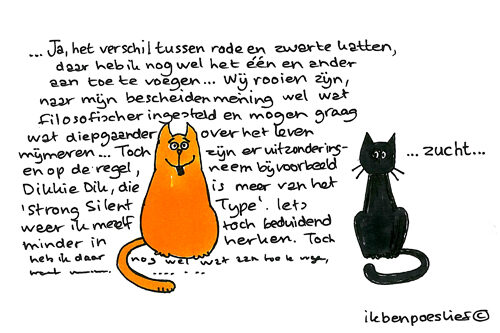 ... Ja, het verschil tussen rode en zwarte katten,
daar heb ik nog wel het één en ander
aan toe te voegen... Wij rooien zijn,
naar mijn bescheiden mening wel wat
filosofischer ingesteld en mogen graag
wat diepgaander over het leven
mijmeren... Toch zijn er uitzondering-
en op de regel, neem bijvoorbeeld
Dikkie Dik, die is meer van het
'Strong Silent Type'. Iets
weer ik mezelf toch beduidend
minder in herken. Toch
heb ik daar nog wel wat aan toe te
... zucht...
ikbenpoeslief ©